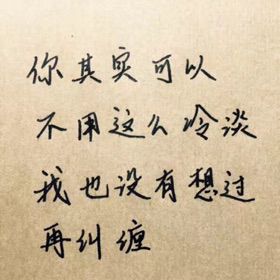 你其实可以
不用这么冷谈
我也没有想过
再纠缠